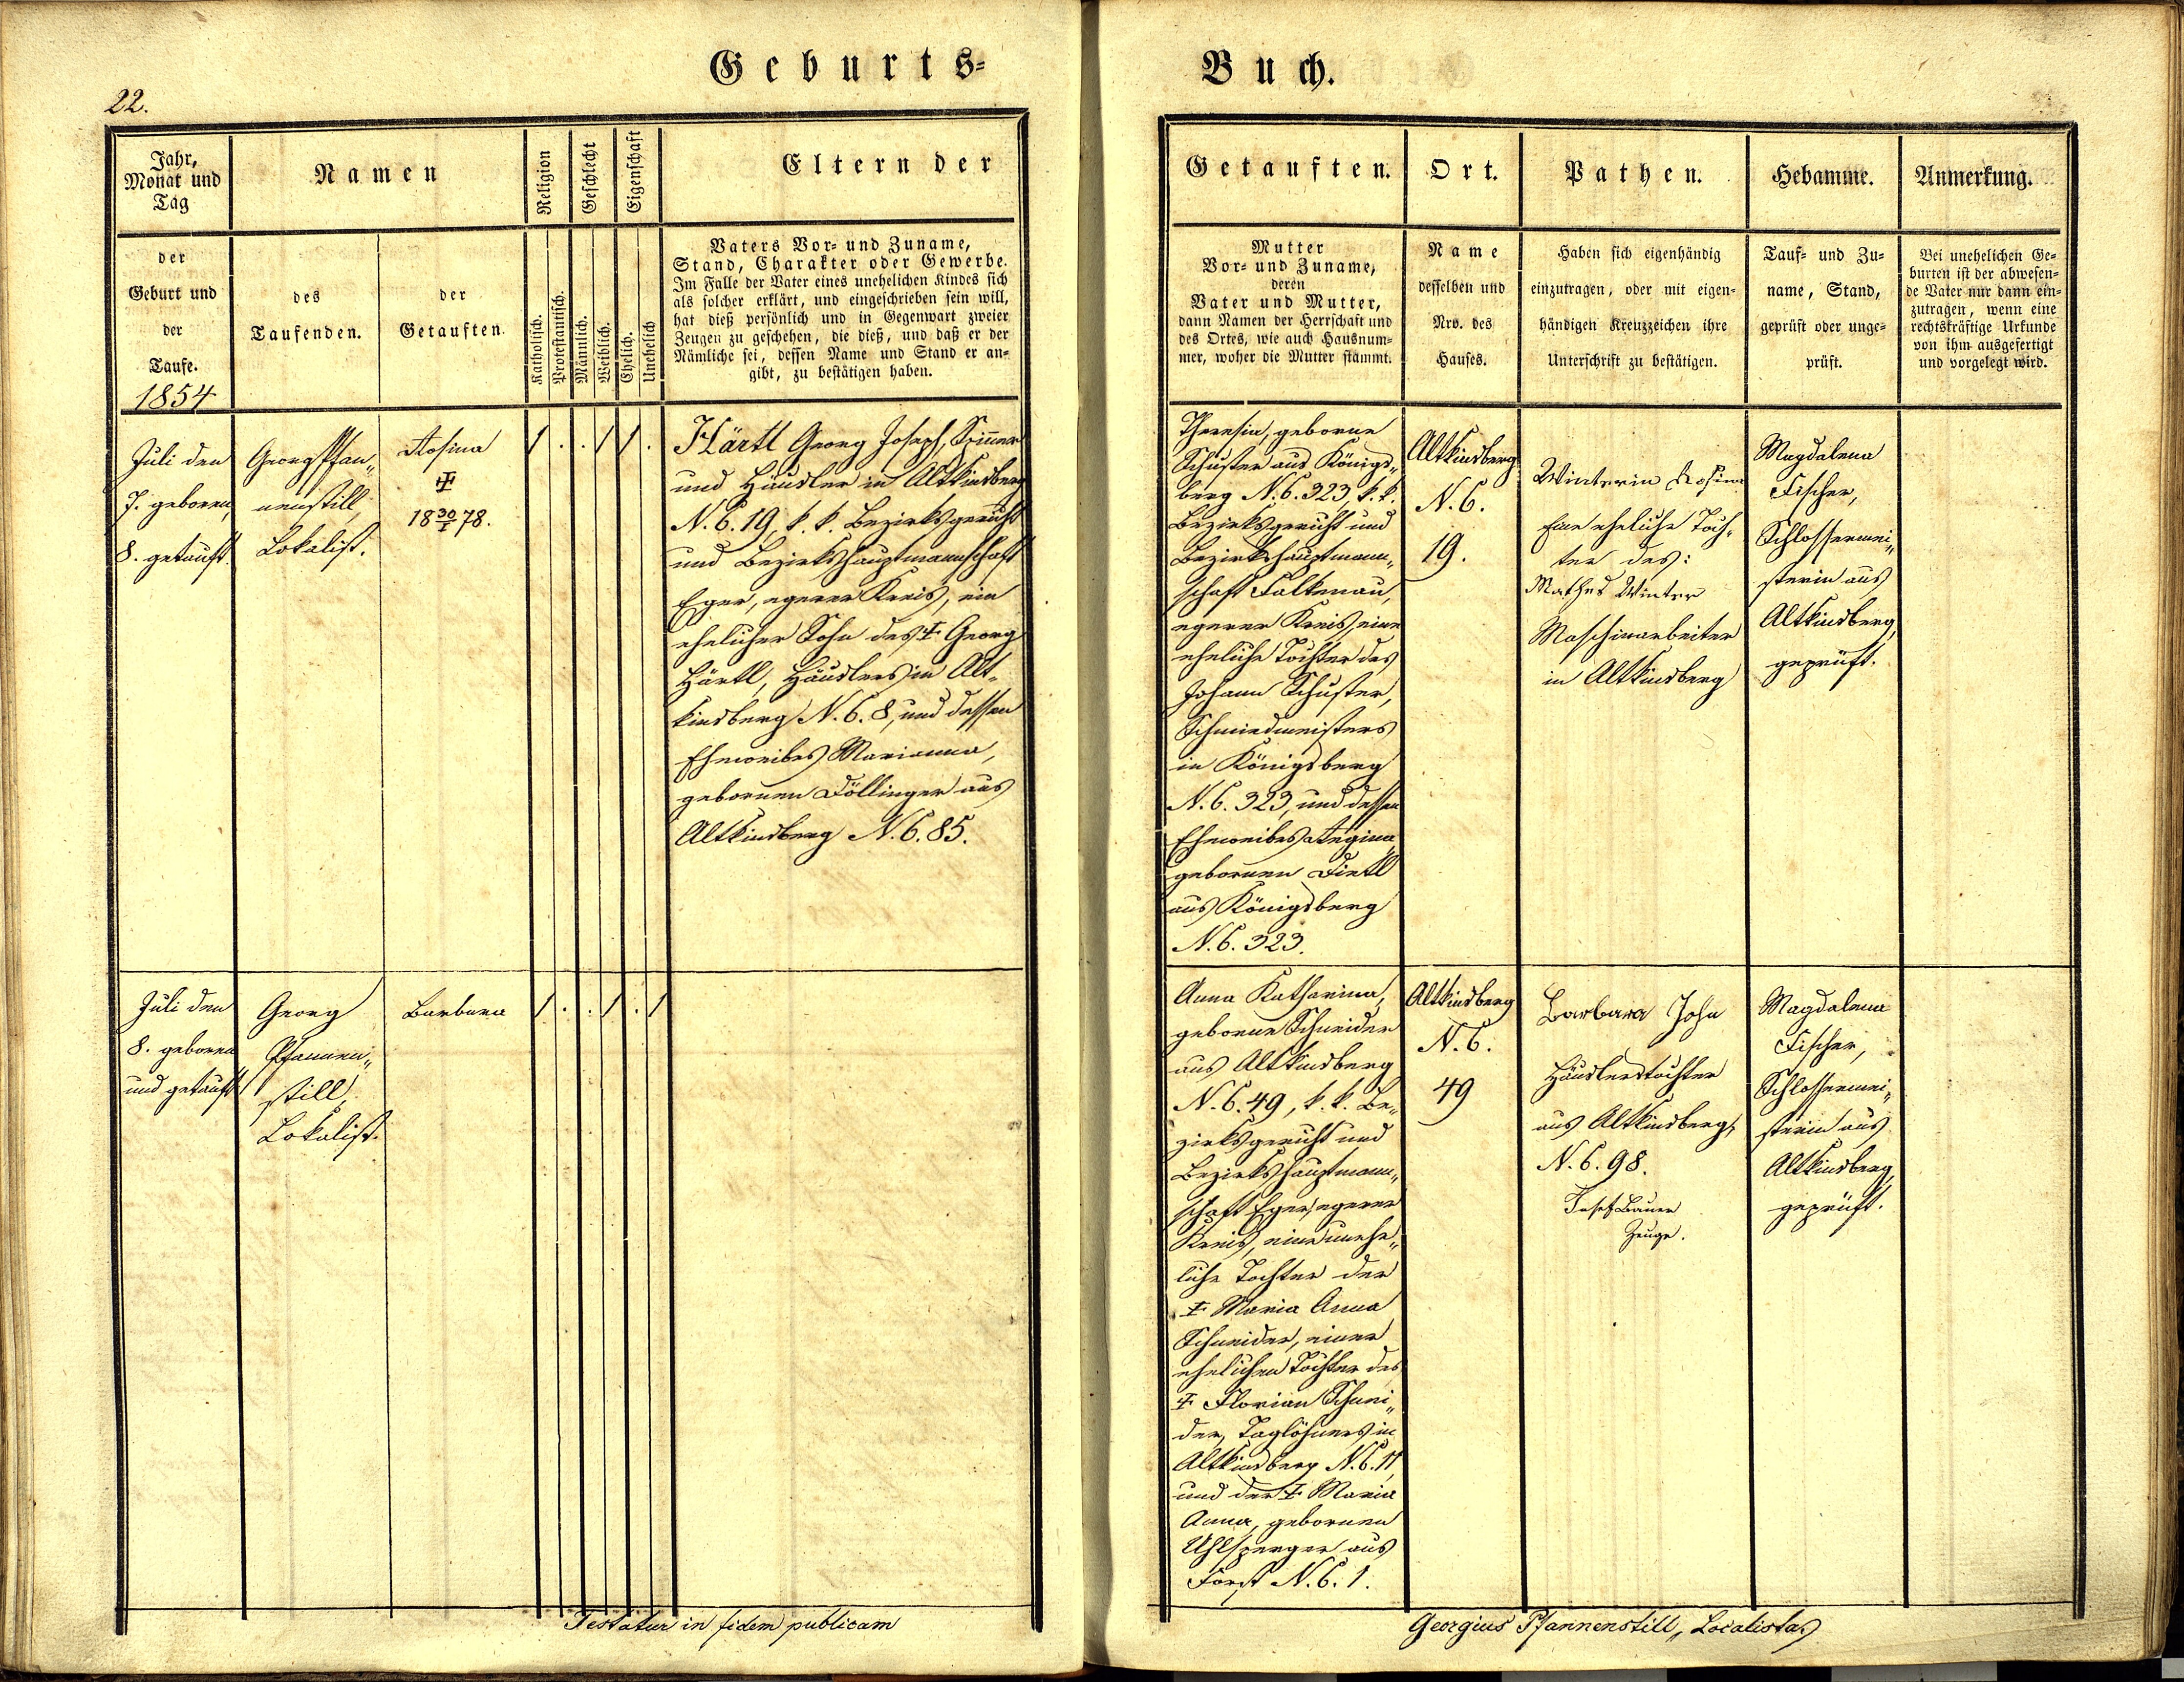 Geburts-
22.
Jahr,
Monat und
Tag
Namen
Religion
Geschlecht
Eigenschaft
Eltern der
der
Geburt und
der
Taufe.
1854
des
Taufenden.
der
Getauften.
Katholisch.
Protestantisch.
Männlich.
Weiblich.
Ehelich.
Unehelich
Vaters Vor- und Zuname,
Stand, Charakter oder Gewerbe.
Im Falle der Vater eines unehelichen Kindes sich
als solcher erklärt, und eingeschrieben sein will,
hat dieß persönlich und in Gegenwart zweier
Zeugen zu geschehen, die dieß, und daß er der
Nämliche sei, dessen Name und Stand er an-
gibt, zu bestätigen haben.
Juli den
7. geboren,
8. getauft.
Georg Pfan„
nenstill,
Lokalist.
Rosina
‡
18 30/I 78.
1 . . 1 1 .
Härtl Georg Joseph, Spinner
und Häusler in Altkinsberg
N. C. 19, k. k. Bezirksgericht
und Bezirkshauptmannschaft
Eger, egerer Kreis, ein
ehelicher Sohn des ‡ Georg
Härtl, Häuslers in Alt„
kinsberg N. C. 8, und dessen
Eheweibes Marianna,
gebornen Döllinger aus
Altkinsberg N. C. 85.
Juli den
8. geboren
und getauft.
Georg
Pfannen„
still,
Lokalist.
Barbara
1 . . 1 . 1
Testatur in fidem publicam
Buch.
Getauften.
Ort.
Pathen.
Hebamme.
Anmerkung.
Mutter
Vor- und Zuname,
deren
Vater und Mutter,
dann Namen der Herrschaft und
des Ortes, wie auch Hausnum-
mer, woher die Mutter stammt.
Name
desselben und
Nro. des
Hauses.
Haben sich eigenhändig
einzutragen, oder mit eigen-
händigen Kreuzzeichen ihre
Unterschrift zu bestätigen.
Tauf- und Zu-
name, Stand,
geprüft oder unge-
prüft.
Bei unehelichen Ge-
burten ist der abwesen-
de Vater nur dann ein-
zutragen, wenn eine
rechtskräftige Urkunde
von ihm ausgefertigt
und vorgelegt wird.
Theresia, geborne
Schuster aus Königs„
berg N. C. 323, k. k.
Bezirksgericht und
Bezirkshauptmann„
schaft Falkenau,
egerer Kreis, eine
eheliche Tochter des
Johann Schuster,
Schmiedmeisters
in Königsberg
N. C. 323, und dessen
Eheweibes Regina,
gebornen Dietl
aus Königsberg
N. C. 323.
Altkinsberg
N. C.
19.
Winterin Rosina
Eine eheliche Toch„
ter des:
Mathes Winter
Maschinarbeiter
in Altkinsberg
Magdalena
Fischer,
Schlossermei„
sterin aus
Altkinsberg,
geprüft.
Anna Katharina,
geborne Schneider
aus Altkinsberg
N. C. 49, k. k. Be„
zirksgericht und
Bezirkshauptmann„
schaft Eger, egerer
Kreis, eine unehe„
liche Tochter der
‡ Maria Anna
Schneider, einer
ehelichen Tochter des
‡ Florian Schnei„
der, Taglöhners in
Altkinsberg N. C. 11,
und der ‡ Maria
Anna, gebornen
Uhlsperger aus
Forst N. C. 1.
Altkinsberg
N. C.
49
Barbara John
Häuslerstochter
aus Altkinsberg,
N. C. 98.
Josef Bauer
Zeuge.
Magdalena
Fischer,
Schlossermei„
sterin aus
Altkinsberg,
geprüft.
Georgius Pfannenstill, Localista.